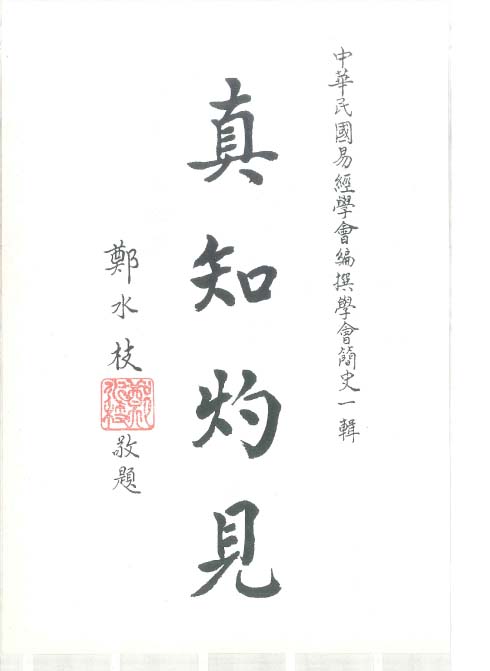 中華民國易經學會編撰學會簡史一輯
真知灼見
鄭水枝
敬題